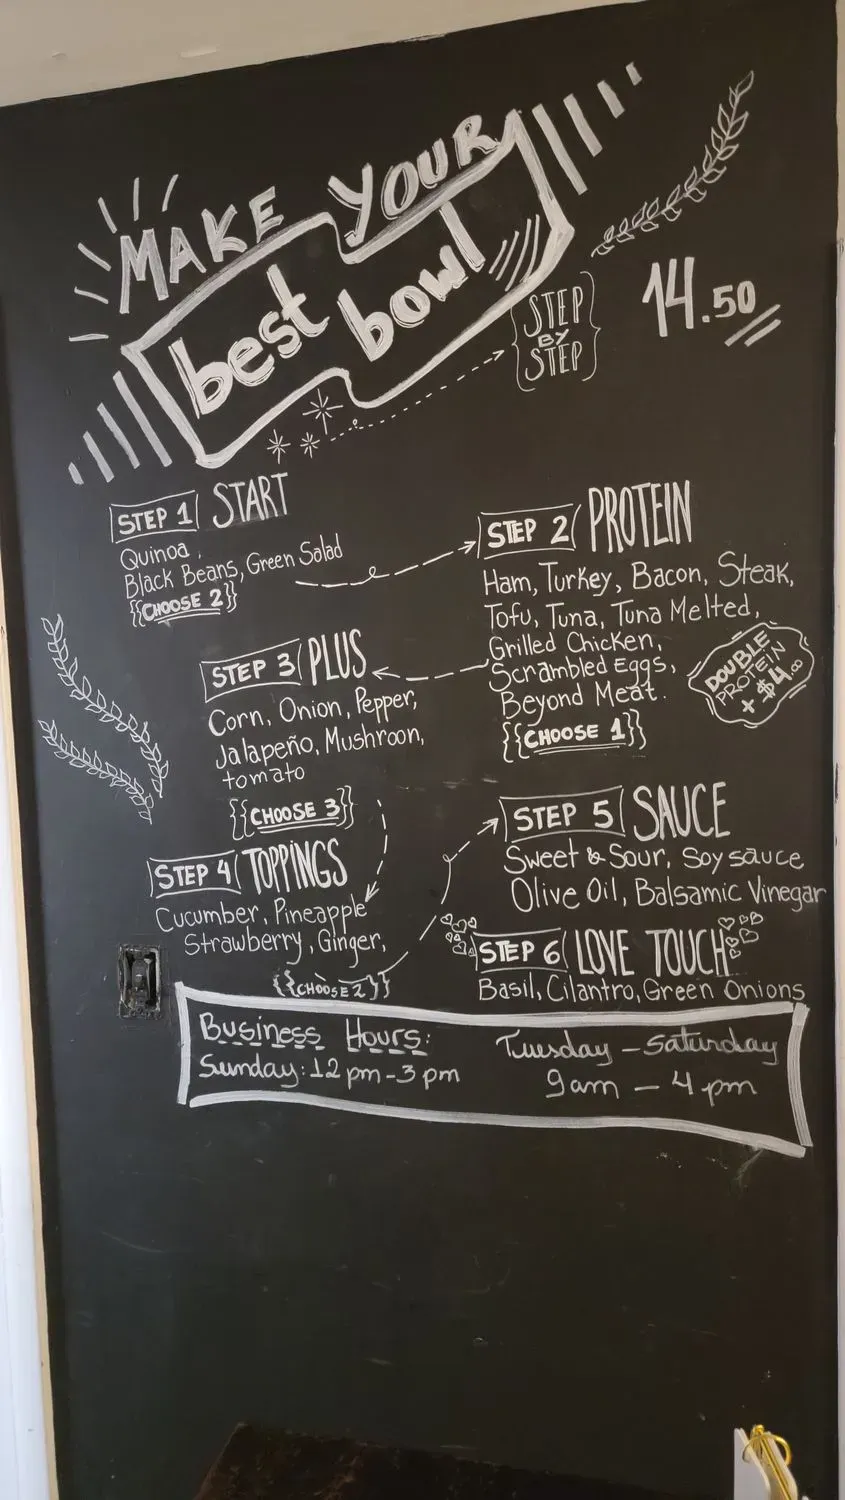 MAKE YOUR
best bowl
STEP
BY
STEP
14.50
STEP 1 START
Quinoa,
Black Beans, Green Salad
{{CHOOSE 2}}
STEP 2 PROTEIN
Ham, Turkey, Bacon, Steak,
Tofu, Tuna, Tuna Melted,
Grilled Chicken,
Scrambled Eggs,
Beyond Meat.
{{CHOOSE 1}}
DOUBLE
PROTEIN
+ $4.00
STEP 3 PLUS
Corn, Onion, Pepper,
Jalapeño, Mushroon,
tomato
{{CHOOSE 3}}
STEP 4 TOPPINGS
Cucumber, Pineapple
Strawberry, Ginger,
{{CHOOSE 2}}
STEP 5 SAUCE
Sweet & Sour, Soy sauce
Olive Oil, Balsamic Vinegar
STEP 6 LOVE TOUCH
Basil, Cilantro, Green Onions
Business Hours:
Sunday: 12 pm - 3 pm
Tuesday - Saturday
9am - 4 pm